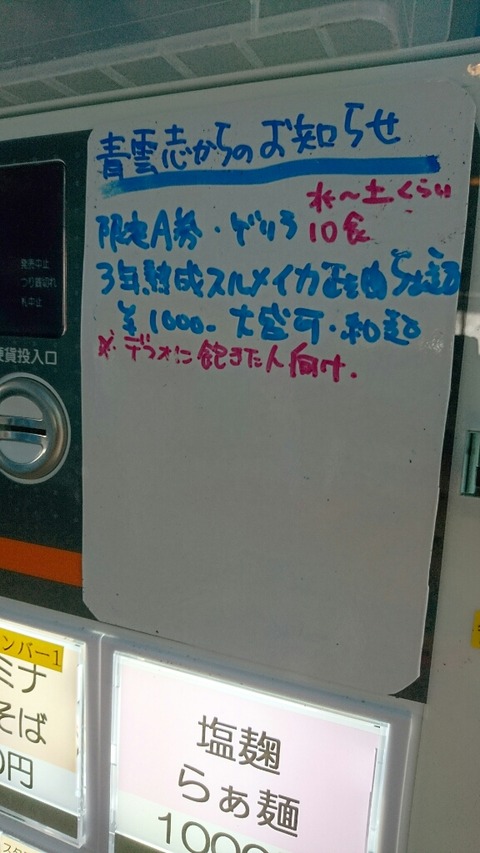 青雲志からのお知らせ
水〜土くらい
限定A券・ゲリラ 10食
3年熟成スルメイカ正油らぁ麺
¥1000- 大盛可・和麺
※デフォに飽きた人向け.
発売中止
つり銭切れ
札中止
硬貨投入口
ンバー1
ミナ
そば
0円
塩麹
らぁ麺
1000